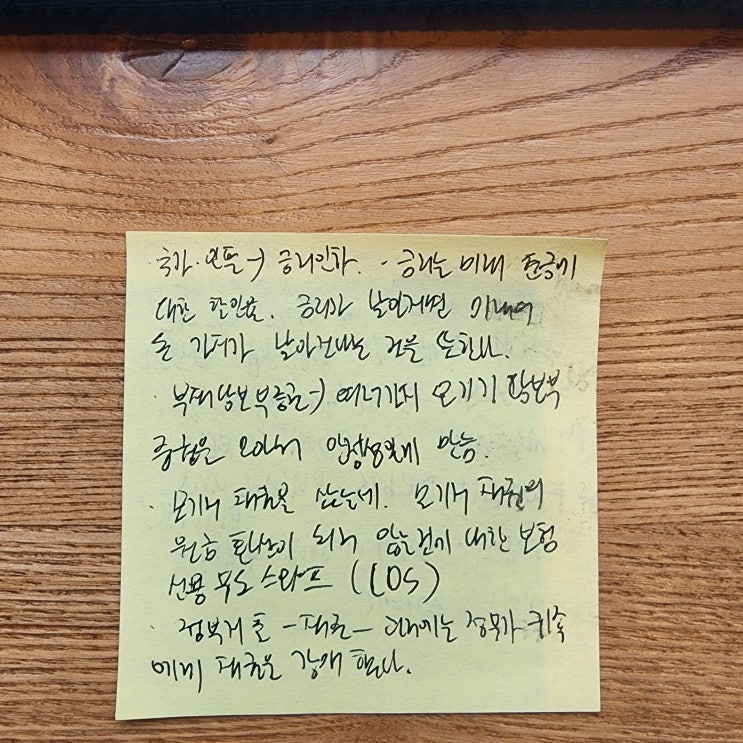 · 국가 · 연돈 → 금리인하. · 금리는 미래 현금에
대한 할인율. 금리가 낮아지면 미래의
가치가 낮아진다는 것을 뜻한다.
· 부채담보부증권 → 여러가지 모기지 담보부
증권을 모아서 안정성있게 만듬.
· 모기지 채권을 샀는데. 모기지 채권의
원금 환산이 되지 않는것에 대한 보험
신용 부도 스와프 (CDS)
· 정부지출 - 채권 - 에는 정부가 귀족
에게 채권을 강매 했다.